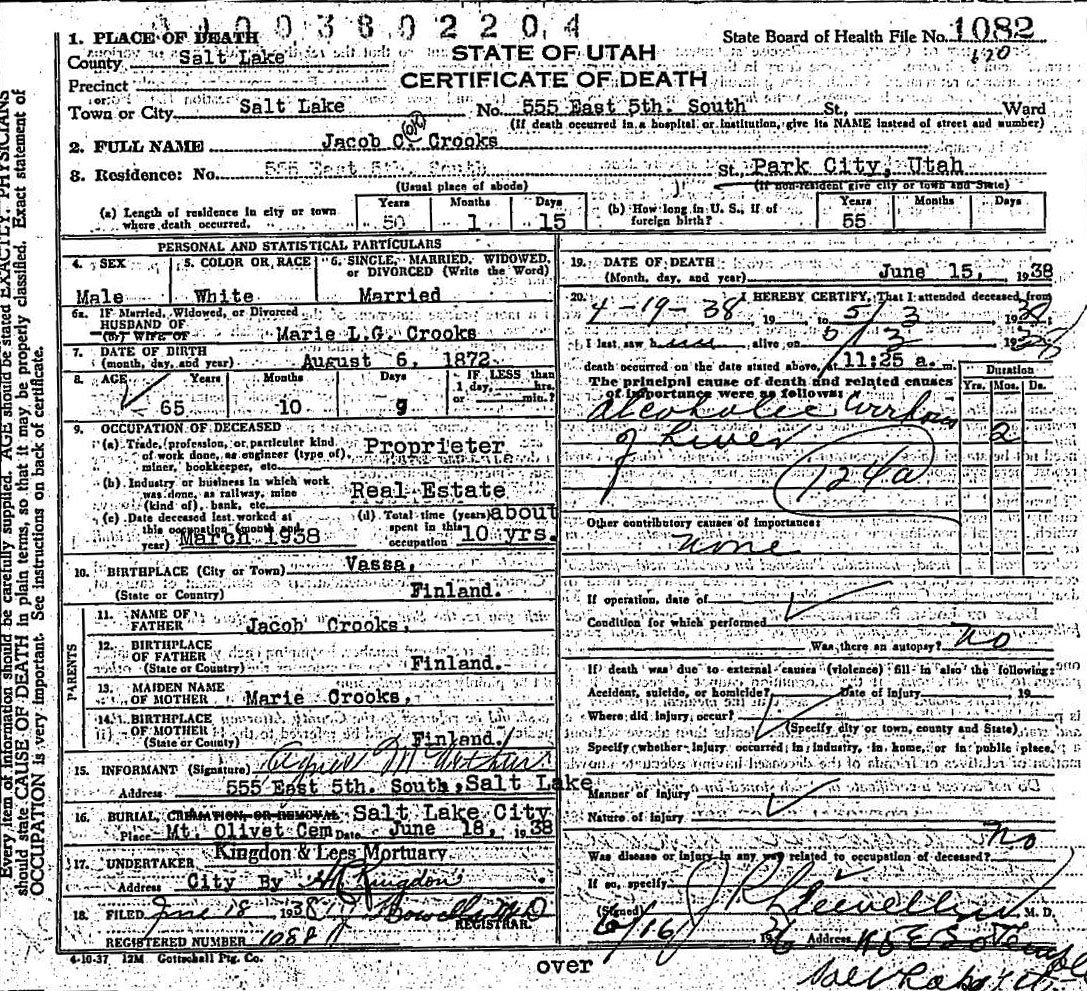 1003802204
1. PLACE OF DEATH
County Salt Lake
State Board of Health File No. 1082
STATE OF UTAH
CERTIFICATE OF DEATH
Precinct
Town or City Salt Lake No. 555 East 5th. South St., Ward
(If death occurred in a hospital or institution, give its NAME instead of street and number)
2. FULL NAME Jacob C. Crooks
8. Residence: No. 555 East 5th. South St. Park City, Utah
(Usual place of abode) (If non-resident give city or town and State)
(a) Length of residence in city or town where death occurred. Years 50 Months 1 Days 15
(b) How long in U. S., if of foreign birth? Years 55 Months Days
PERSONAL AND STATISTICAL PARTICULARS
4. SEX Male
5. COLOR OR RACE White
6. SINGLE, MARRIED, WIDOWED, or DIVORCED (Write the Word) Married
6a. IF Married, Widowed, or Divorced
HUSBAND OF
(or) WIFE OF Marie L.G. Crooks
7. DATE OF BIRTH
(month, day, and year) August 6, 1872
8. AGE Years 65 Months 10 Days 9 IF LESS than 1 day, hrs. or min.?
9. OCCUPATION OF DECEASED
(a) Trade, profession, or particular kind of work done, as engineer (type of) miner, bookkeeper, etc. Proprieter
(b) Industry or business in which work was done, as railway, mine (kind of), bank, etc. Real Estate
(c) Date deceased last worked at this occupation (month and year) March 1938
(d) Total time (years) spent in this occupation about 10 yrs.
10. BIRTHPLACE (City or Town) Vassa,
(State or Country) Finland.
PARENTS
11. NAME OF FATHER Jacob Crooks,
12. BIRTHPLACE OF FATHER (State or Country) Finland.
13. MAIDEN NAME OF MOTHER Marie Crooks,
14. BIRTHPLACE OF MOTHER (State or Country) Finland.
15. INFORMANT (Signature)
Address 555 East 5th. South, Salt Lake
16. BURIAL, CREMATION, OR REMOVAL Salt Lake City
Place Mt. Olivet Cem Date June 18, 1938
17. UNDERTAKER Kingdon & Lees Mortuary
Address City By Kingdon
18. FILED June 18 1938
REGISTRAR.
REGISTERED NUMBER 1088
4-10-37 12M Gottschall Ptg. Co.
19. DATE OF DEATH
(Month, day, and year) June 15, 1938
20. I HEREBY CERTIFY, That I attended deceased from
4-19-38 19 to 5/3 19
I last saw h alive on 5/3 19
death occurred on the date stated above, at 11:25 a. m.
The principal cause of death and related causes of importance were as follows:
Duration
Yrs. Mos. Ds.
Alcoholic
of Liver 2
124a
Other contributory causes of importance:
None
If operation, date of
Condition for which performed
Was there an autopsy? No
If death was due to external causes (violence) fill in also the following:
Accident, suicide, or homicide? Date of injury 19
Where did injury occur?
(Specify city or town, county and State)
Specify whether injury occurred in industry, in home, or in public place.
Manner of injury
Nature of injury
Was disease or injury in any way related to occupation of deceased? No
If so, specify
(Signed) M. D.
6/16 Address
over
Every item of information should be carefully supplied. AGE should be stated EXACTLY. PHYSICIANS
should state CAUSE OF DEATH in plain terms, so that it may be properly classified. Exact statement of
OCCUPATION is very important. See instructions on back of certificate.